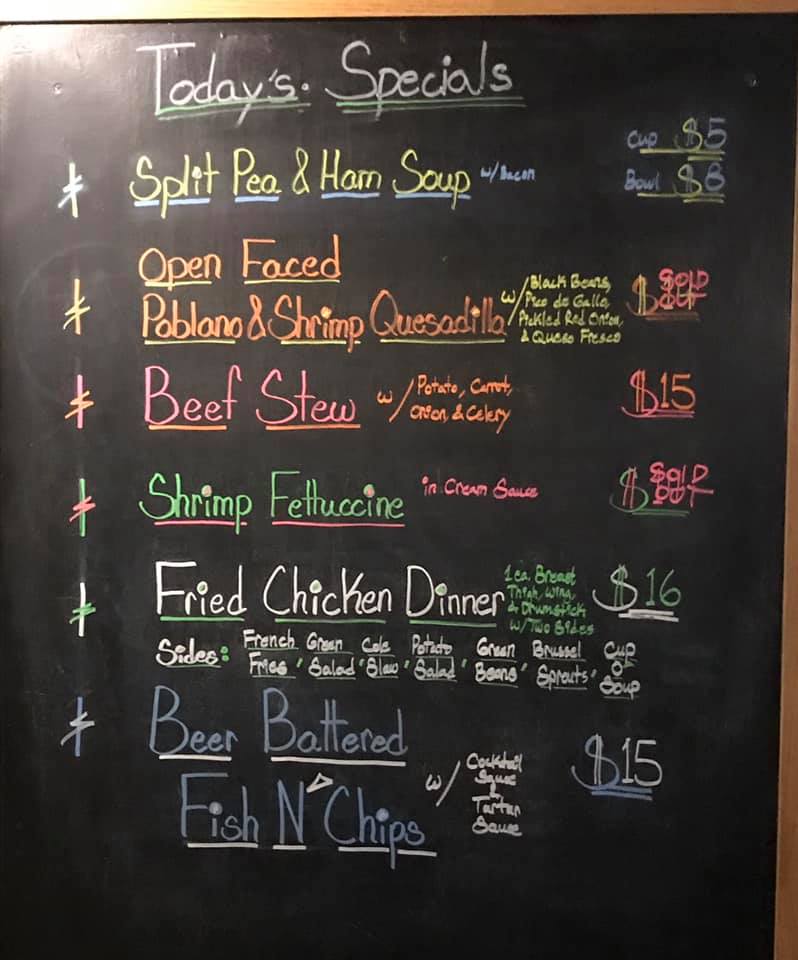 Today's. Specials
Cup $5
Split Pea & Ham Soup w/Bacon
Bowl $8
Open Faced
Poblano & Shrimp Quesadilla
w/ Black Beans,
Pico de Gallo,
Pickled Red Onion,
& Queso Fresco
$ SOLD
OUT
Beef Stew
w/ Potato, Carrot,
Onion, & Celery
$15
Shrimp Fettuccine in Cream Sauce
$ SOLD
OUT
Fried Chicken Dinner
1 ea. Breast
Thigh, Wing,
& Drumstick
w/Two Sides
$16
Sides:
French
Fries,
Green
Salad,
Cole
Slaw,
Potato
Salad,
Green
Beans,
Brussel
Sprouts,
Cup
O'
Soup
Beer Battered
Fish N' Chips
w/ Cocktail
Squce
&
Tartan
Sauce
$15